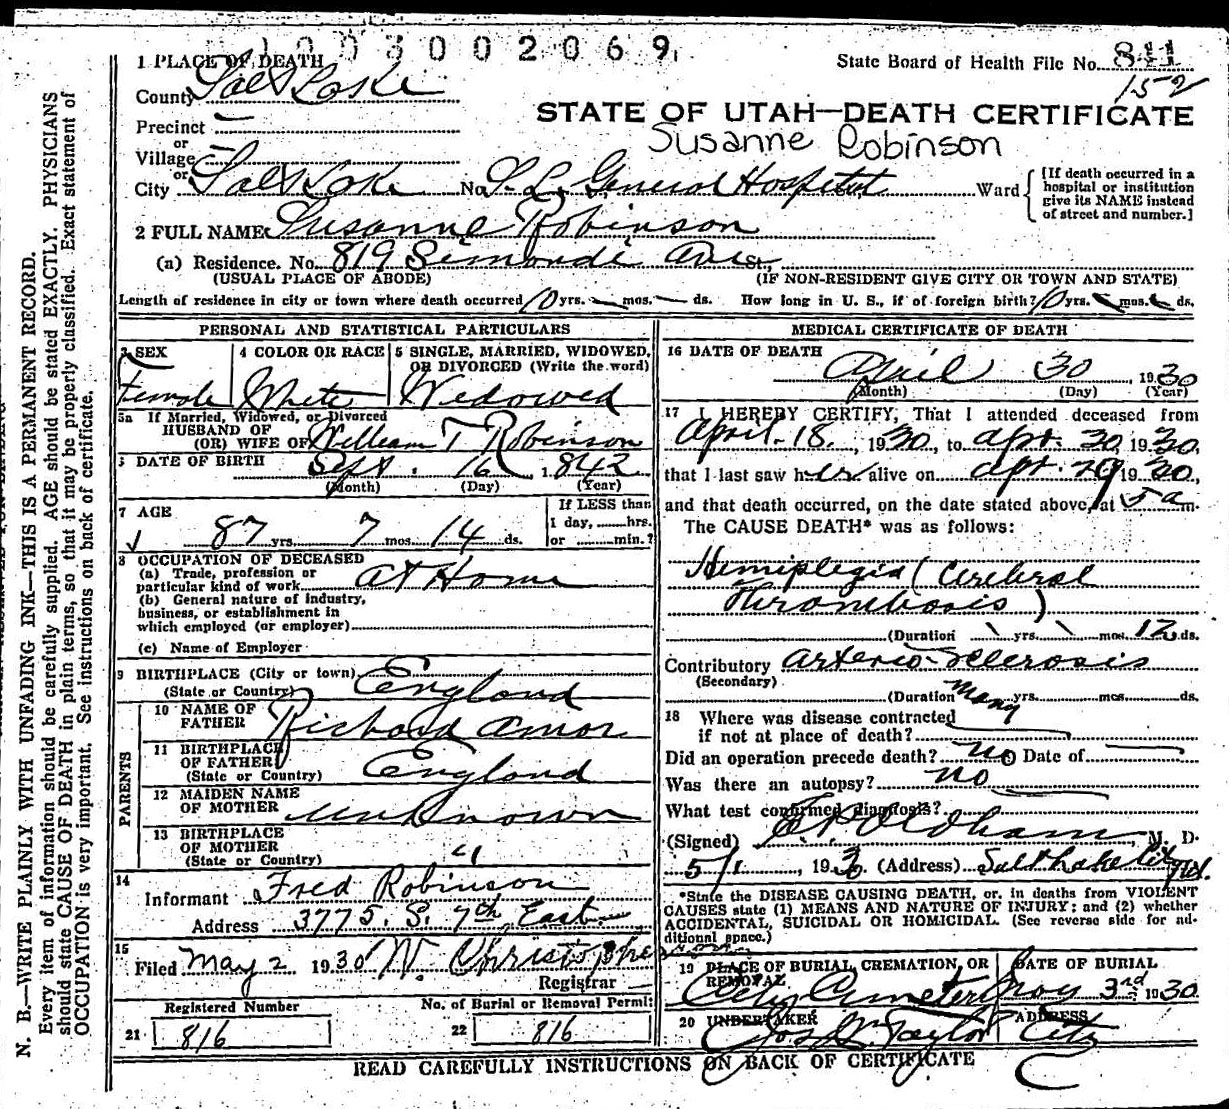 1003002069
1 PLACE OF DEATH
State Board of Health File No. 841
152
County Salt Lake
STATE OF UTAH—DEATH CERTIFICATE
Precinct —
Susanne Robinson
or
Village —
or
City Salt Lake No. S. L. General Hospital Ward
[If death occurred in a hospital or institution give its NAME instead of street and number.]
2 FULL NAME Susanne Robinson
(a) Residence. No. 819 Simondi Ave St.,
(USUAL PLACE OF ABODE) (IF NON-RESIDENT GIVE CITY OR TOWN AND STATE)
Length of residence in city or town where death occurred 10 yrs. — mos. — ds. How long in U. S., if of foreign birth? 10 yrs. mos. ds.
PERSONAL AND STATISTICAL PARTICULARS
3 SEX
Female
4 COLOR OR RACE
White
5 SINGLE, MARRIED, WIDOWED,
OR DIVORCED (Write the word)
Widowed
5a If Married, Widowed, or Divorced
HUSBAND OF
(OR) WIFE OF William T Robinson
6 DATE OF BIRTH Sept. 16 1842
(Month) (Day) (Year)
7 AGE
87 yrs. 7 mos. 14 ds.
If LESS than
1 day, ......hrs.
or ......min.?
8 OCCUPATION OF DECEASED
(a) Trade, profession or
particular kind of work At Home
(b) General nature of industry,
business, or establishment in
which employed (or employer)
(c) Name of Employer
9 BIRTHPLACE (City or town)
(State or Country) England
PARENTS
10 NAME OF
FATHER Richard Amor
11 BIRTHPLACE
OF FATHER
(State or Country) England
12 MAIDEN NAME
OF MOTHER Unknown
13 BIRTHPLACE
OF MOTHER
(State or Country) "
14
Informant Fred Robinson
Address 3775 S. 7th East
15
Filed May 2 1930 Christopherson
Registrar
Registered Number
21 816
No. of Burial or Removal Permit
22 816
MEDICAL CERTIFICATE OF DEATH
16 DATE OF DEATH
April 30, 1930
(Month) (Day) (Year)
17 I HEREBY CERTIFY, That I attended deceased from
April 18, 1930, to Apr. 30, 1930,
that I last saw her alive on Apr. 29 1930,
and that death occurred, on the date stated above, at 5 a m.
The CAUSE DEATH* was as follows:
Hemiplegia (Cerebral
Thrombosis)
(Duration \ yrs. \ mos. 12 ds.
Contributory Arterio-Sclerosis
(Secondary)
(Duration Many yrs. mos. ds.
18 Where was disease contracted
if not at place of death?
Did an operation precede death? No Date of —
Was there an autopsy? no
What test confirmed diagnosis?
(Signed) Oldham, M. D.
5/1, 1930 (Address) Salt Lake City
*State the DISEASE CAUSING DEATH, or, in deaths from VIOLENT
CAUSES state (1) MEANS AND NATURE OF INJURY; and (2) whether
ACCIDENTAL, SUICIDAL OR HOMICIDAL. (See reverse side for additional space.)
19 PLACE OF BURIAL, CREMATION, OR
REMOVAL
City Cemetery
DATE OF BURIAL
May 3rd 1930
20 UNDERTAKER
Taylor
ADDRESS
City
READ CAREFULLY INSTRUCTIONS ON BACK OF CERTIFICATE
N. B.—WRITE PLAINLY WITH UNFADING INK—THIS IS A PERMANENT RECORD.
Every item of information should be carefully supplied. AGE should be stated EXACTLY. PHYSICIANS
should state CAUSE OF DEATH in plain terms, so that it may be properly classified. Exact statement of
OCCUPATION is very important. See instructions on back of certificate.